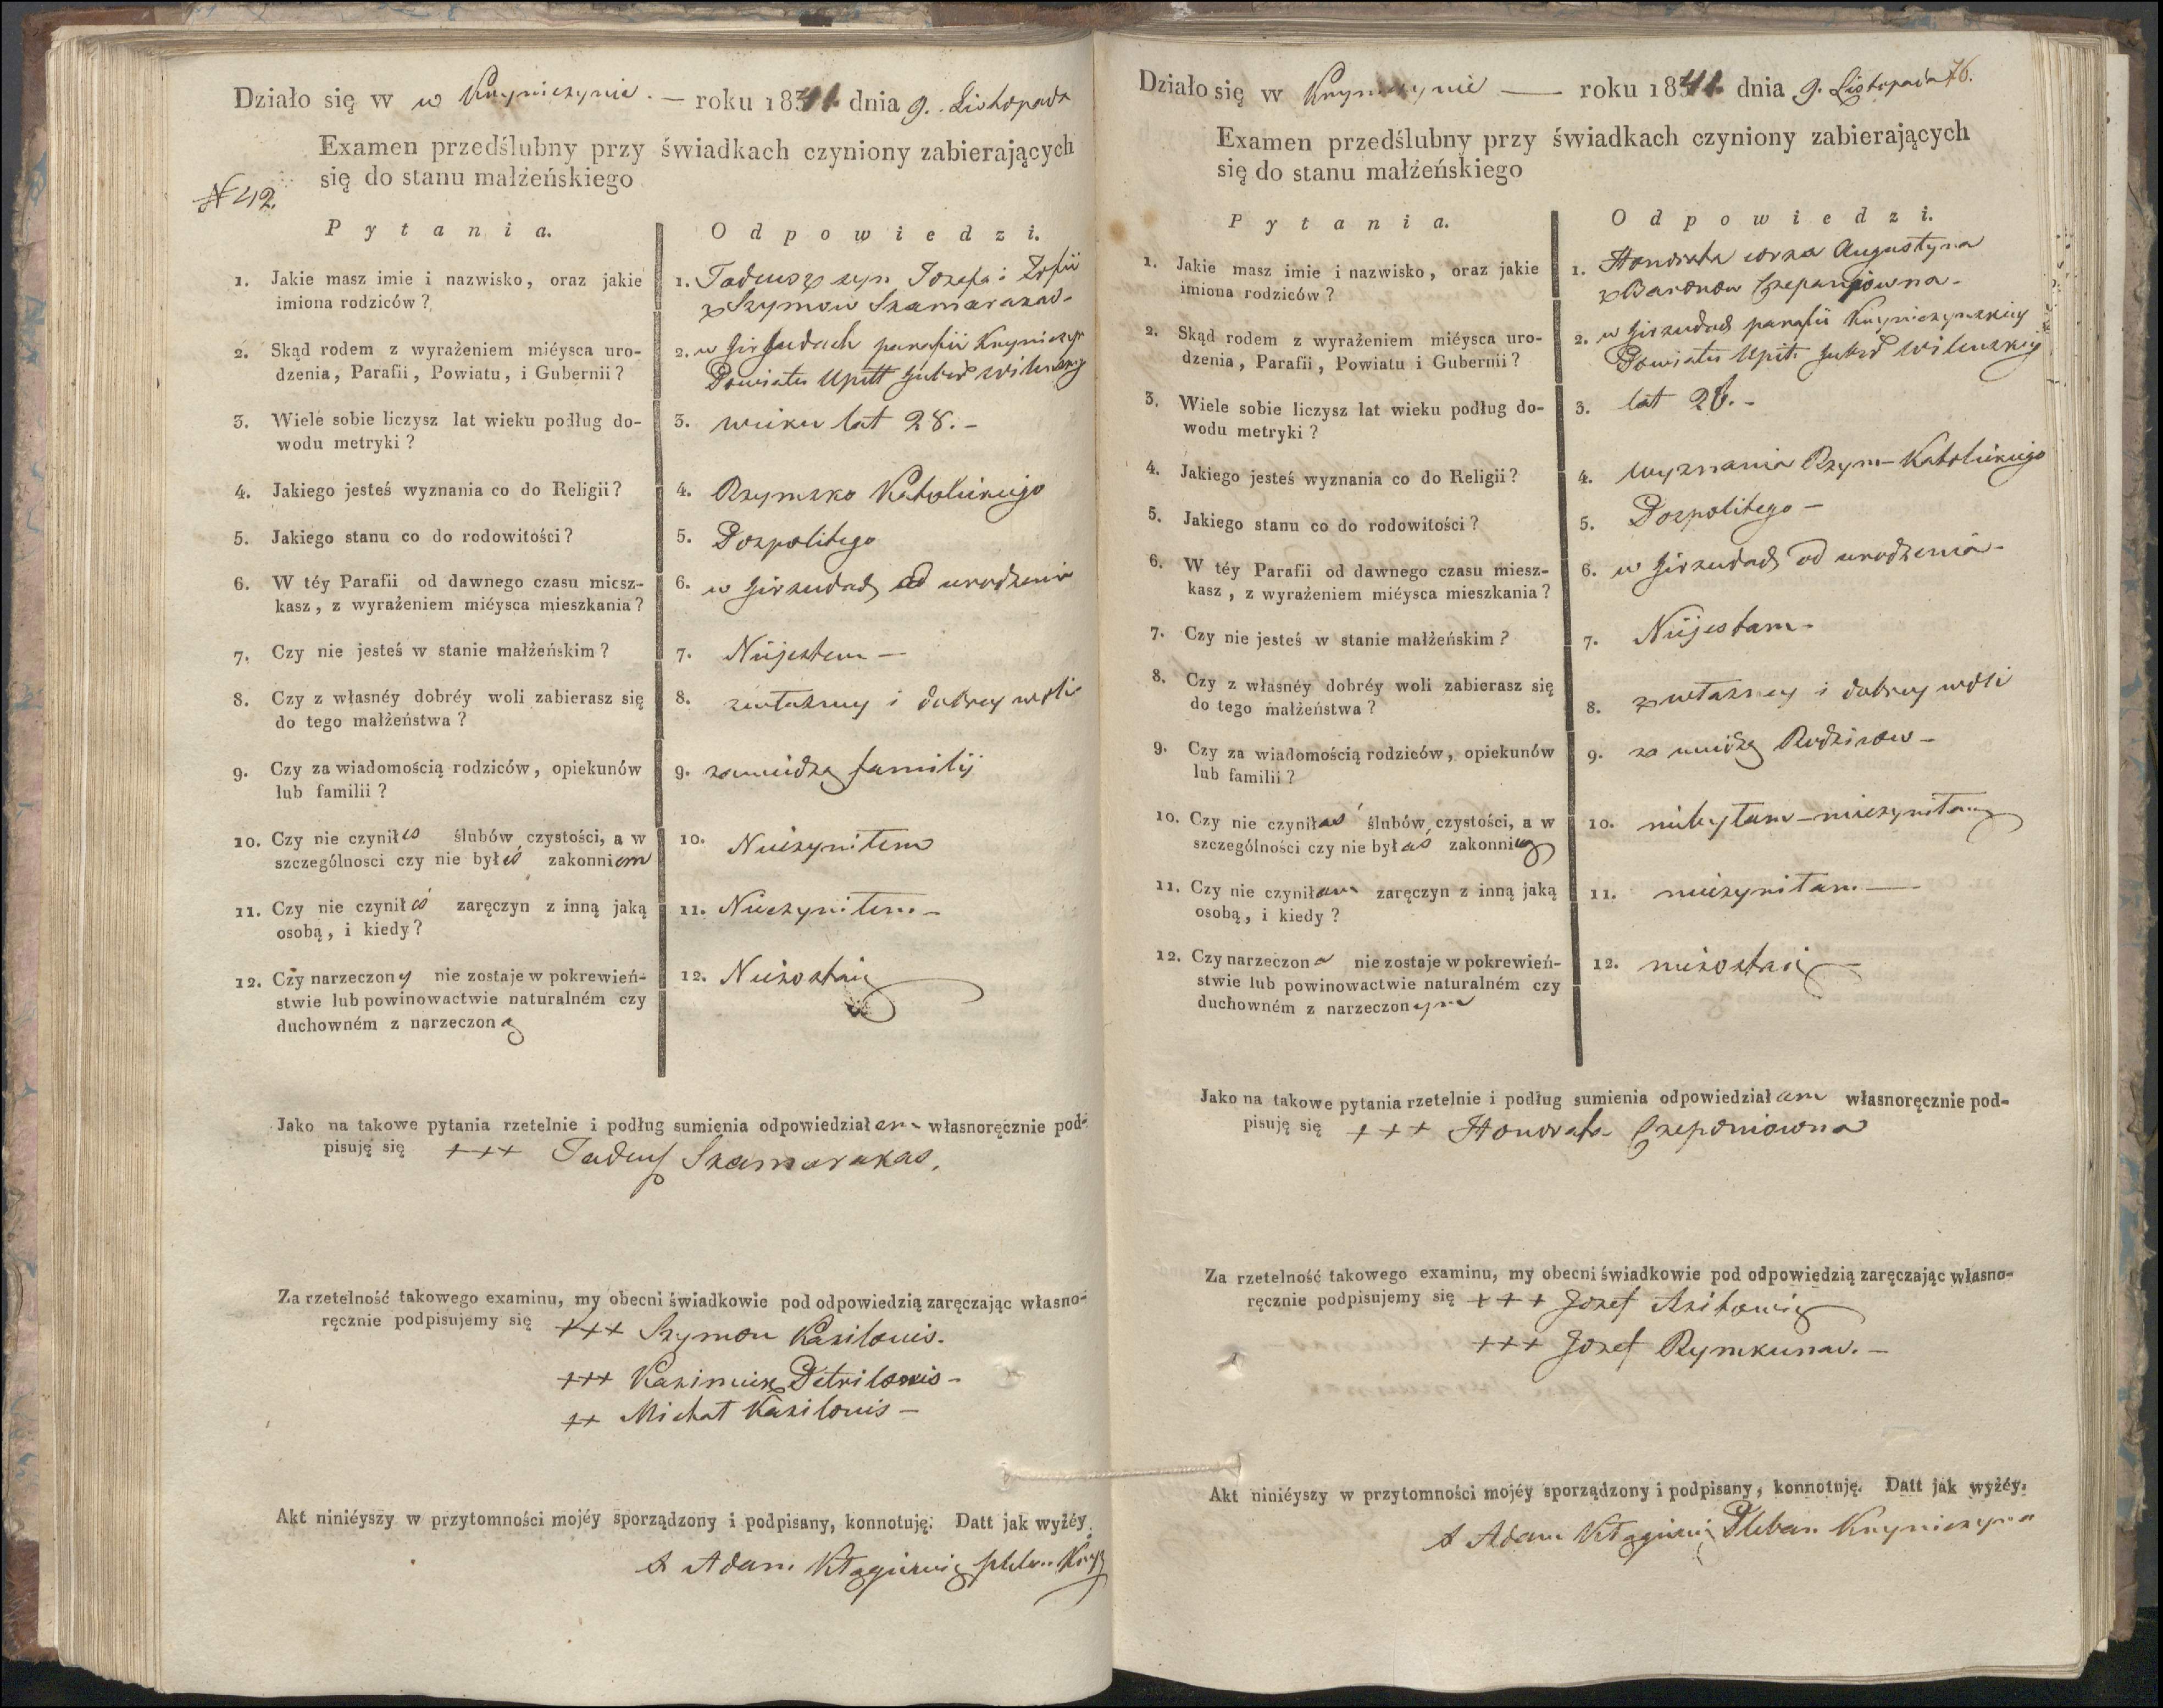 Działo się w w Knyniszynie. — roku 1841 dnia 9. Listopada
Examen przedślubny przy świadkach czyniony zabierających
się do stanu małżeńskiego
N 42.
Pytania.
Odpowiedzi.
1. Jakie masz imie i nazwisko, oraz jakie
imiona rodziców?
1. Tadeusz syn Jozefa i Zofii
z Szymow Skamarakas-
2. Skąd rodem z wyrażeniem miéysca uro-
dzenia, Parafii, Powiatu, i Gubernii?
2. w parafii
Powiatu Upitt
3. Wiele sobie liczysz lat wieku podług do-
wodu metryki?
3. wieku lat 28. -
4. Jakiego jesteś wyznania co do Religii?
4. Rzymsko Katolickiego
5. Jakiego stanu co do rodowitości?
5. Pospolitego
6. W téy Parafii od dawnego czasu miesz-
kasz, z wyrażeniem miéysca mieszkania?
6. w od urodzenia
7. Czy nie jesteś w stanie małżeńskim?
7. Niejestem —
8. Czy z własnéy dobréy woli zabierasz się
do tego małżeństwa?
8. zwłasney i dobrey woli
9. Czy za wiadomością rodziców, opiekunów
lub familii?
9. zawiedzą familij
10. Czy nie czyniłeś ślubów czystości, a w
szczególnosci czy nie byłeś zakonniem
10. Nieczyniłem
11. Czy nie czyniłeś zaręczyn z inną jaką
osobą, i kiedy?
11. Nieczyniłem. -
12. Czy narzeczony nie zostaje w pokrewień-
stwie lub powinowactwie naturalném czy
duchowném z narzeczoną
12. Niezostaię
Jako na takowe pytania rzetelnie i podług sumienia odpowiedziałem własnoręcznie pod-
pisuję się +++ Tadeusz Skamarakas.
Za rzetelność takowego examinu, my obecni świadkowie pod odpowiedzią zaręczając własno-
ręcznie podpisujemy się +++ Szymon Kazilonis.
+++ Kazimierz Petrilonis -
++ Michał Kazilonis —
Akt niniéyszy w przytomności mojéy sporządzony i podpisany, konnotuję. Datt jak wyżéy.
X Adam
Działo się w Knyniszynie — roku 1841 dnia 9. Listopada 76.
Examen przedślubny przy świadkach czyniony zabierających
się do stanu małżeńskiego
Pytania.
Odpowiedzi.
1. Jakie masz imie i nazwisko, oraz jakie
imiona rodziców?
1. Honorata corka Augustyna
z Baronow
2. Skąd rodem z wyrażeniem miéysca uro-
dzenia, Parafii, Powiatu i Gubernii?
2. w parafii
Powiatu Upit.
3. Wiele sobie liczysz lat wieku podług do-
wodu metryki?
3. lat
4. Jakiego jesteś wyznania co do Religii?
4. wyznania Rzym-Katolickiego
5. Jakiego stanu co do rodowitości?
5. Pospolitego —
6. W téy Parafii od dawnego czasu miesz-
kasz, z wyrażeniem miéysca mieszkania?
6. w od urodzenia -
7. Czy nie jesteś w stanie małżeńskim?
7. Niejestem -
8. Czy z własnéy dobréy woli zabierasz się
do tego małżeństwa?
8. zwłasney i dobrey woli
9. Czy za wiadomością rodziców, opiekunów
lub familii?
9. za wiedzą Rodzicow —
10. Czy nie czyniłaś ślubów czystości, a w
szczególności czy nie byłaś zakonnicą
10. niebyłam - nieczyniłam
11. Czy nie czyniłam zaręczyn z inną jaką
osobą, i kiedy?
11. nieczyniłam —
12. Czy narzeczona nie zostaje w pokrewień-
stwie lub powinowactwie naturalném czy
duchowném z narzeczonym
12. niezostaię —
Jako na takowe pytania rzetelnie i podług sumienia odpowiedziałam własnoręcznie pod-
pisuję się +++ Honorata
Za rzetelność takowego examinu, my obecni świadkowie pod odpowiedzią zaręczając własno-
ręcznie podpisujemy się +++ Jozef
+++ Jozef Rymkunas. —
Akt niniéyszy w przytomności mojéy sporządzony i podpisany, konnotuję. Datt jak wyżéy.
X Adam Pleban